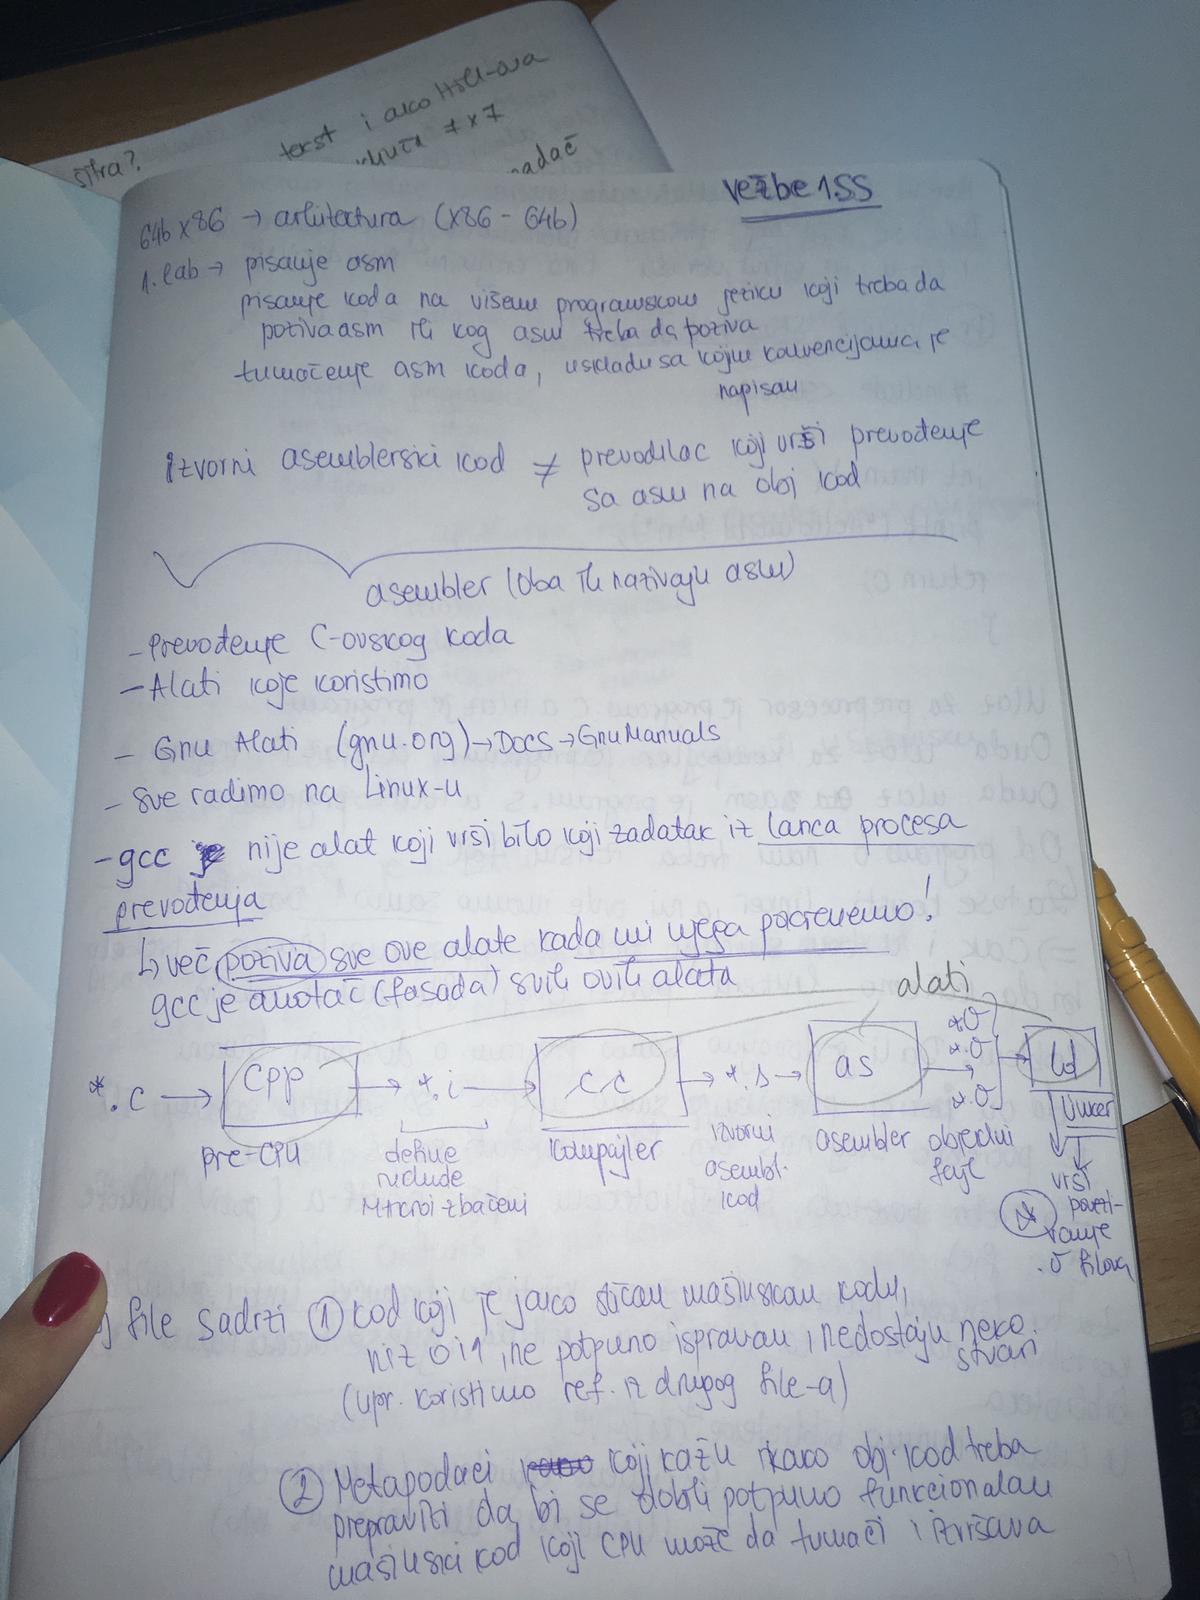 šifra?
tekst i ako
7x7
Vežbe 1SS
64b x86 → arhitectura (x86 - 64b)
1. lab → pisanje asm
pisanje koda na višem programskom jeziku koji treba da
poziva asm ili kog asm treba da poziva
tumačenje asm koda, u skladu sa kojim konvencijama je
napisan
Izvorni asemblerski kod ≠ prevodilac koji vrši prevođenje
sa asm na obj kod
asembler (oba ih nazivaju asm)
- Prevođenje C-ovskog koda
- Alati koje koristimo
- Gnu Alati (gnu.org) → Docs → Gnu Manuals
- Sve radimo na Linux-u
- gcc nije alat koji vrši bilo koji zadatak iz lanca procesa
prevođenja
↳ već poziva sve ove alate kada mi njega pokrenemo!
gcc je omotač (fasada) svih ovih alata
alati
*.c → cpp → *.i → cc → *.s → as → *.o *.o *.o → ld
pre-CPU define kompajler izvorni asembler objektni linker
include asembl. fajl vrši
Makroi izbačeni kod povezi-
vanje
.o filova
file sadrzi ① kod koji je jako sličan mašinskom kodu,
niz 0 i 1, ne potpuno ispravan, nedostaju neke
stvari
(npr. koristimo ref. iz drugog file-a)
② Metapodaci koji kažu kako obj. kod treba
prepraviti da bi se dobili potpuno funkcionalan
mašinski kod koji CPU može da tumači i izvršava